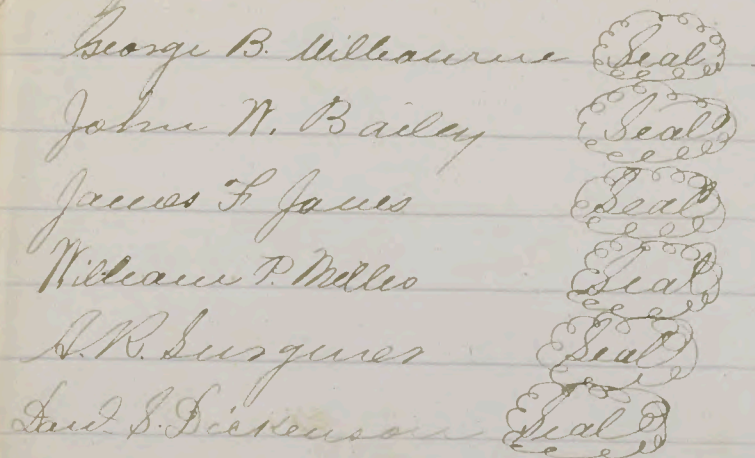 George B. Milbourne Seal
John W. Bailey Seal
James F Jones Seal
William P. Melles Seal
A. R. Seal
Danl S. Dickenson Seal